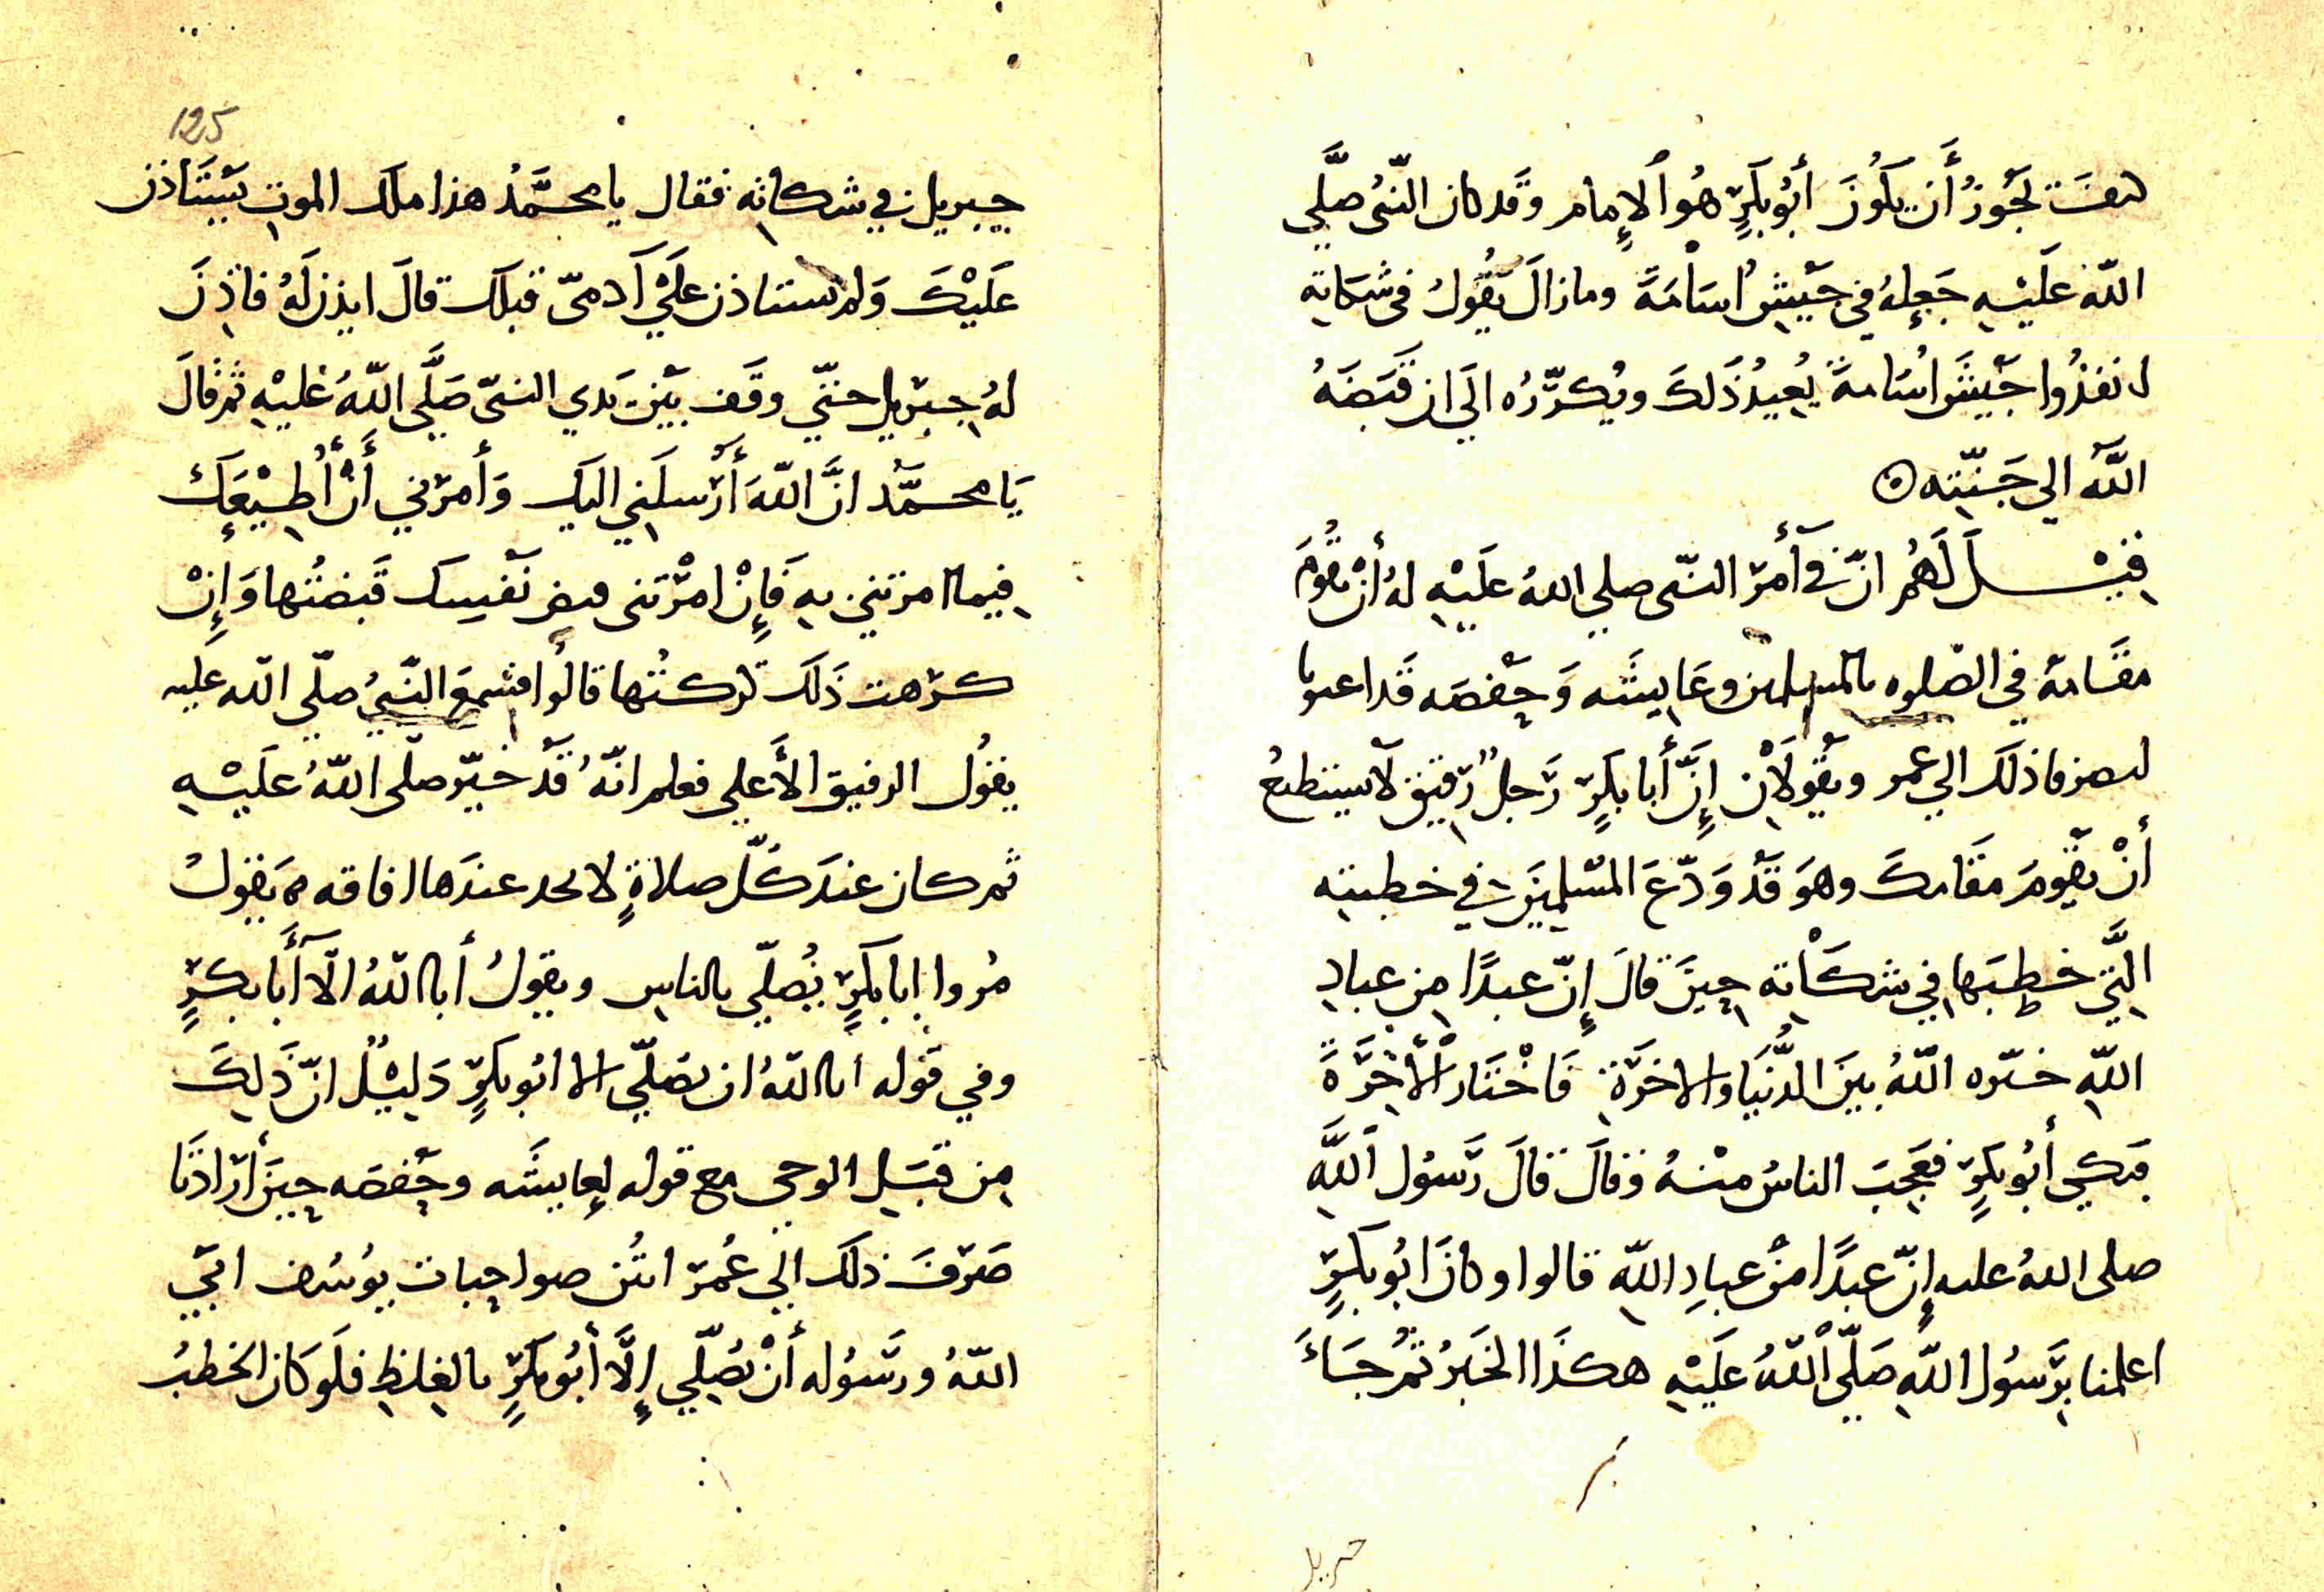 كيف يَجُوزُ أَن يَكُونَ أَبُو بَكرٍ هُوَ الإِمام وقَد كان النّبىُ صلَّي
اللّه عَلَيْهِ جَعَلهُ في جَيْشِ اُسَامَةَ ومازالَ يَقُولُ في شَكَاتِهِ
انفذُوا جَيْشَ اُسَامةَ يُعِيدُ ذَلكَ ويُكرّرُه الَي ان قَبَضَهُ
اللّهُ الي جَنّتِه ⊙
قِيْــلَ لَهُم انّ في أَمرِ النّبى صلي اللهُ عَلَيْهِ لهُ أَنْ يقُومَ
مقَامهُ في الصّلوه بالمسلمين وعَايِشَه وَحَفْصَه قَد اعبوبا
ليصرفا ذلَك الي عمر ويَقُولَانِ إِنَّ أَبا بكرٍ رَجلٌ رَقيق لَا يستطيعُ
أنْ يَقُومَ مقَامكَ وهوَ قَدْ وَدّعَ المُسْلِمِينَ في خطبته
الَّتي خطبَها في شكَاتِه حِينَ قالَ إِنّ عبدًا مِن عبادِ
اللّهِ خيّره اللّهُ بينَ الدُّنيَا والاخرَةِ فَاخْتَار الْأَخِرَةَ
فبَكي أَبُو بكرٍ فعَجِبَ الناسُ مِنْهُ وقالَ قالَ رَسُول اللَّهِ
صلى اللهُ عليه إِنّ عبدًا مِنْ عبادِ اللّهِ قالوا وكانَ ابُو بكرٍ
اعلمنا برَسُول اللّهِ صَلّي اللّهُ عَلَيْهِ هكذَا الخبَرُ ثُمّ جَاءَ
جبريل
125
جبريل في شكاتِه فقال يا محمَّدُ هذا ملَك الموتِ يَسْتَاذن
عَلَيْكَ وَلم يستاذن عَلَي آدمىّ قبلَك قالَ ايذن لَهُ فاذِنَ
لهُ جبريل حتّي وقَف بيْنَ يَدي النبىّ صَلَّي اللّهُ عَليْهِ ثم قالَ
يَا محمَّد انَّ اللّهَ أَرْسلَني اليك وَأَمرَني أَنْ أُطِيْعَكَ
فيما امرتني بهِ فَإِنْ امَرْتَنى بقبض نَفْسِك قَبضْتُها وَإِنْ
كرهت ذَلَك تَركتُها قالُوا فسُمِعَ النّبيُ صلّي اللّه عليه
يقُول الرفيق الأَعلي فعلم انّهُ قَدْ خيّر صلّي اللّهُ عَلَيْهِ
ثم كان عندَ كُلّ صلاةٍ لا يجد عندَها افاقه يَقُولُ
مُروا ابا بكرٍ يُصلّي بالناسِ ويقولُ أبا اللّهُ الّا أَبا بكرٍ
وفي قَوله ابا اللّهُ ان يصَلّي الا ابُو بكرٍ دَلِيْلٌ انّ ذَلِكَ
مِن قبَلِ الوحى مع قوله لِعايشَه وحَفصَه حِينَ أَرادَتَا
صَرْفَ ذلَك الي عُمرَ انتُن صواحِبات يوُسُف ابَي
اللّهُ ورَسُوله أَنْ يُصَلّي إِلَّا أَبُو بكرٍ بالغِلظِ فلَو كان الخطبُ